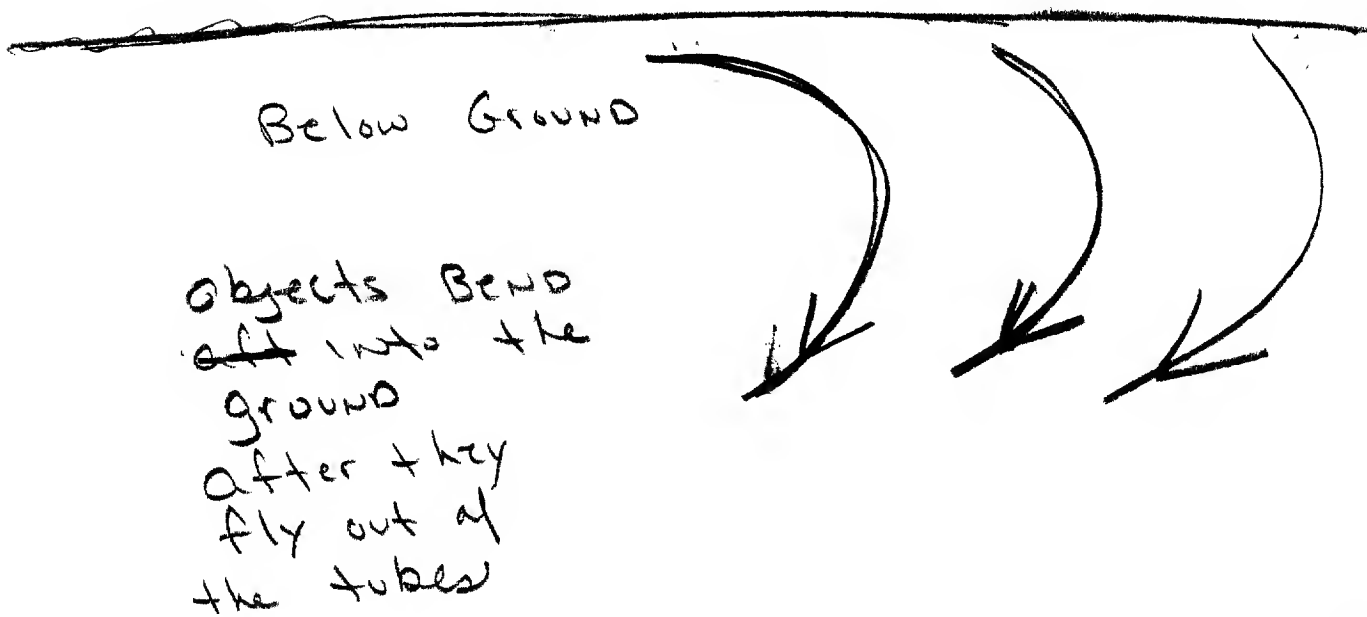 Below GROUND
objects BEND
aft into the
grOUND
after they
fly out of
the tubes